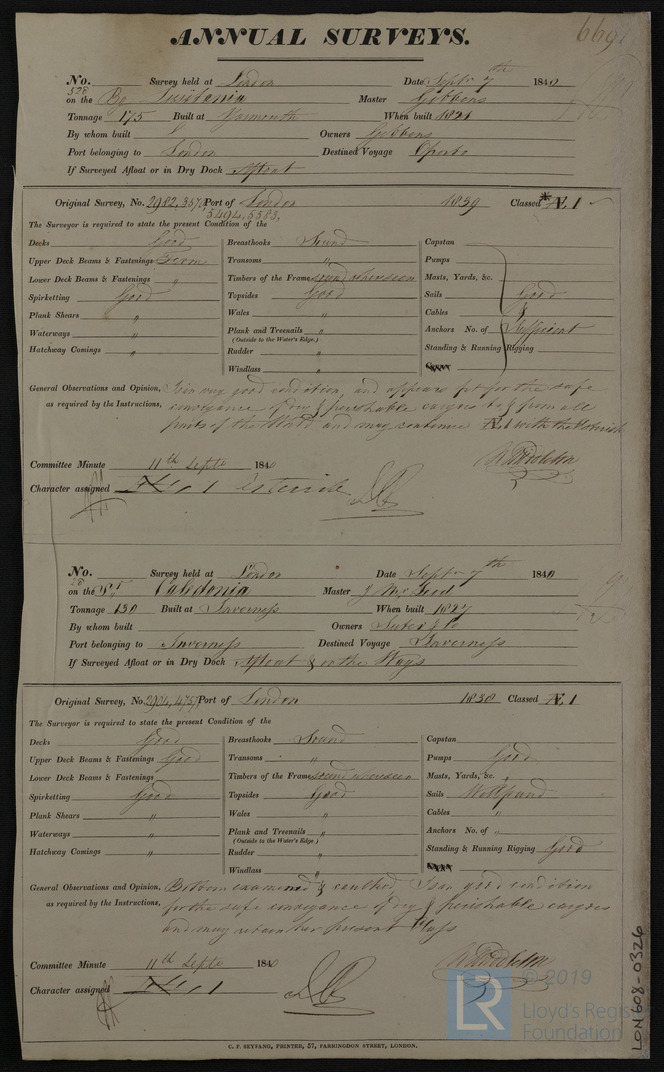 ANNUAL SURVEYS.
669
No. 528 Survey held at London Date Septr 7th 1840
on the Bg Lusitania Master Gibbons
Tonnage 175 Built at Yarmouth When built 1821
By whom built Owners Gibbons
Port belonging to London Destined Voyage Oporto
If Surveyed Afloat or in Dry Dock Afloat
Original Survey, No. 2982, 3573 Port of London 1839 Classed *Æ 1
5494, 5583,
The Surveyor is required to state the present Condition of the
Decks Good Breasthooks Sound Capstan
Upper Deck Beams & Fastenings Firm Transoms " Pumps
Lower Deck Beams & Fastenings " Timbers of the Frame sound where seen Masts, Yards, &c.
Spirketting Good Topsides Good Sails Good
Plank Shears " Wales " Cables &
Waterways " Plank and Treenails " Anchors No. of Sufficient
(Outside to the Water's Edge.)
Hatchway Comings " Rudder " Standing & Running Rigging
Windlass "
General Observations and Opinion, Is in very good condition, and appears fit for the safe
as required by the Instructions, conveyance of dry & perishable cargoes to & from all
parts of the World and may continue Æ 1 with the Asterisk
Committee Minute 11th Septr 1840
Character assigned Æ 1 Asterisk
No. 28 Survey held at London Date Septr 7th 1840
on the Caledonia Master J McLeod
Tonnage 130 Built at Inverness When built 1827
By whom built Owners Suter & Co
Port belonging to Inverness Destined Voyage Inverness
If Surveyed Afloat or in Dry Dock Afloat & on the Ways
Original Survey, No. Port of London 1838 Classed Æ 1
The Surveyor is required to state the present Condition of the
Decks Good Breasthooks Sound Capstan
Upper Deck Beams & Fastenings Good Transoms " Pumps Good
Lower Deck Beams & Fastenings Timbers of the Frame sound where seen Masts, Yards, &c.
Spirketting Good Topsides Good Sails Well found
Plank Shears " Wales " Cables "
Waterways " Plank and Treenails " Anchors No. of "
(Outside to the Water's Edge.)
Hatchway Comings " Rudder " Standing & Running Rigging Good
Windlass "
General Observations and Opinion, Bottom examined & caulked, Is in good condition
as required by the Instructions, for the safe conveyance of dry & perishable cargoes
and may retain her present Class
Committee Minute 11th Septr 1840
Character assigned Æ 1
C. F. SEYFANG, PRINTER, 57, FARRINGDON STREET, LONDON.
LON 608-0326
LR
© 2019
Lloyd's Register
Foundation